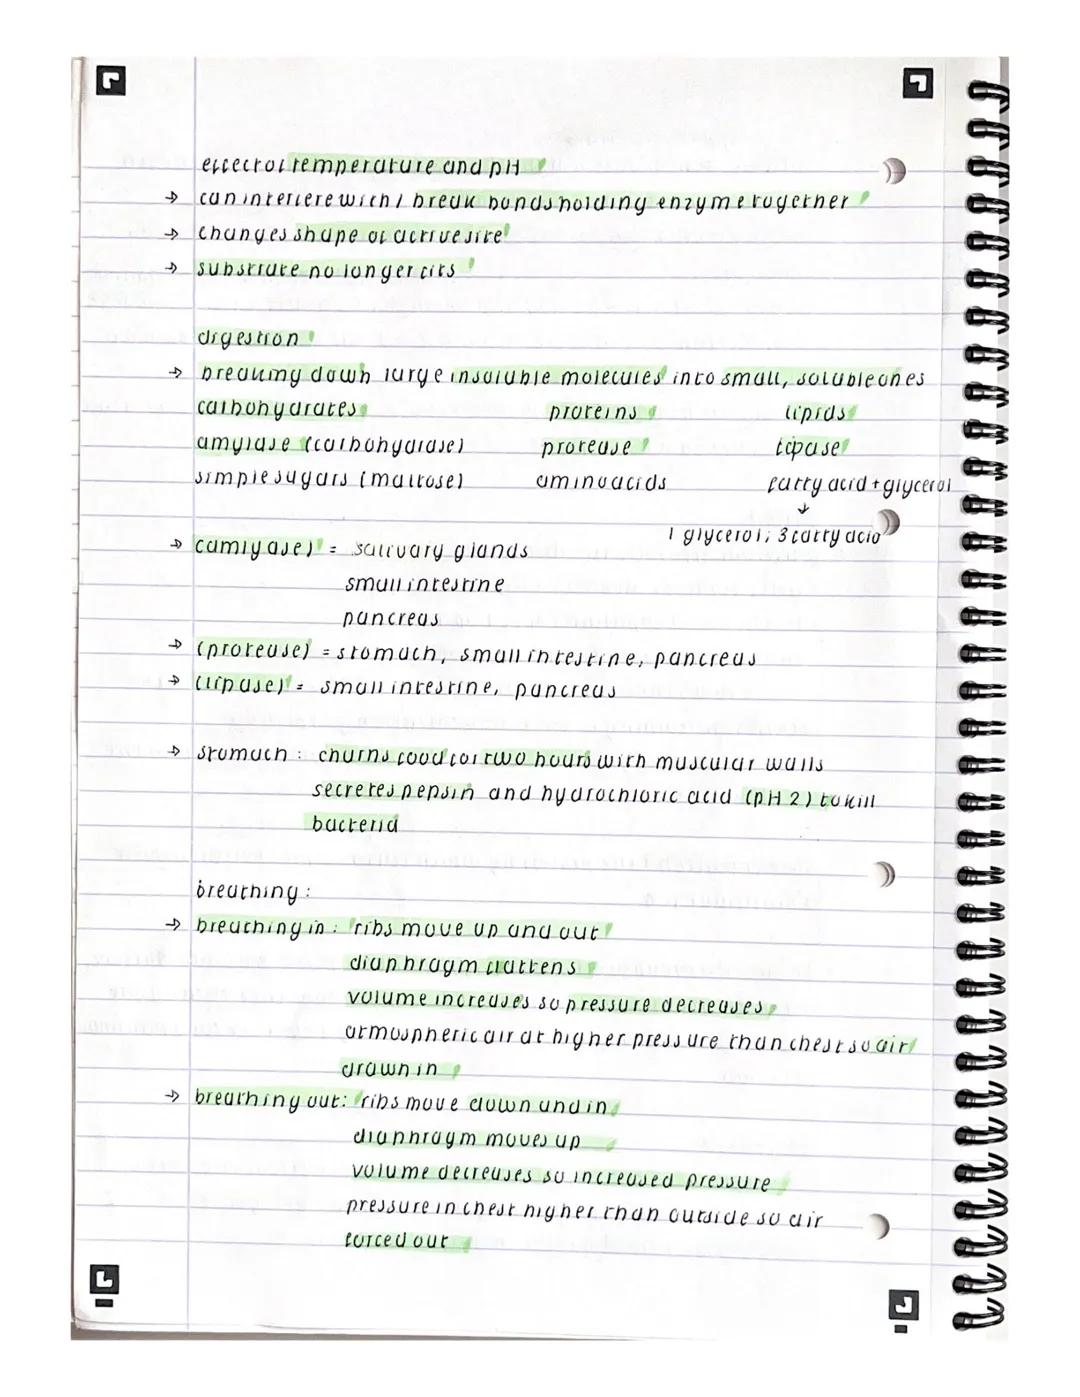 effect of temperature and pH
→ can interfere with / break bonds holding enzyme together
→ changes shape of active site
→ substrate no longer fits
digestion
→ breaking down large insoluble molecules into small, soluble ones
carbohydrates proteins lipids
amylase (carbohydrase) protease lipase
simple sugars (maltose) amino acids fatty acid + glycerol
↓
1 glycerol; 3 fatty acid
→ (amlyase) = salivary glands
small intestine
pancreas
→ (protease) = stomach, small intestine, pancreas
→ (lipase) = small intestine, pancreas
→ stomach : churns food for two hours with muscular walls
secretes pepsin and hydrochloric acid (pH 2) to kill
bacteria
breathing :
→ breathing in : ribs move up and out
diaphragm flattens
volume increases so pressure decreases
atmospheric air at higher pressure than chest so air
drawn in
→ breathing out: ribs move down and in
diaphragm moves up
volume decreases so increased pressure
pressure in chest higher than outside so air
forced out